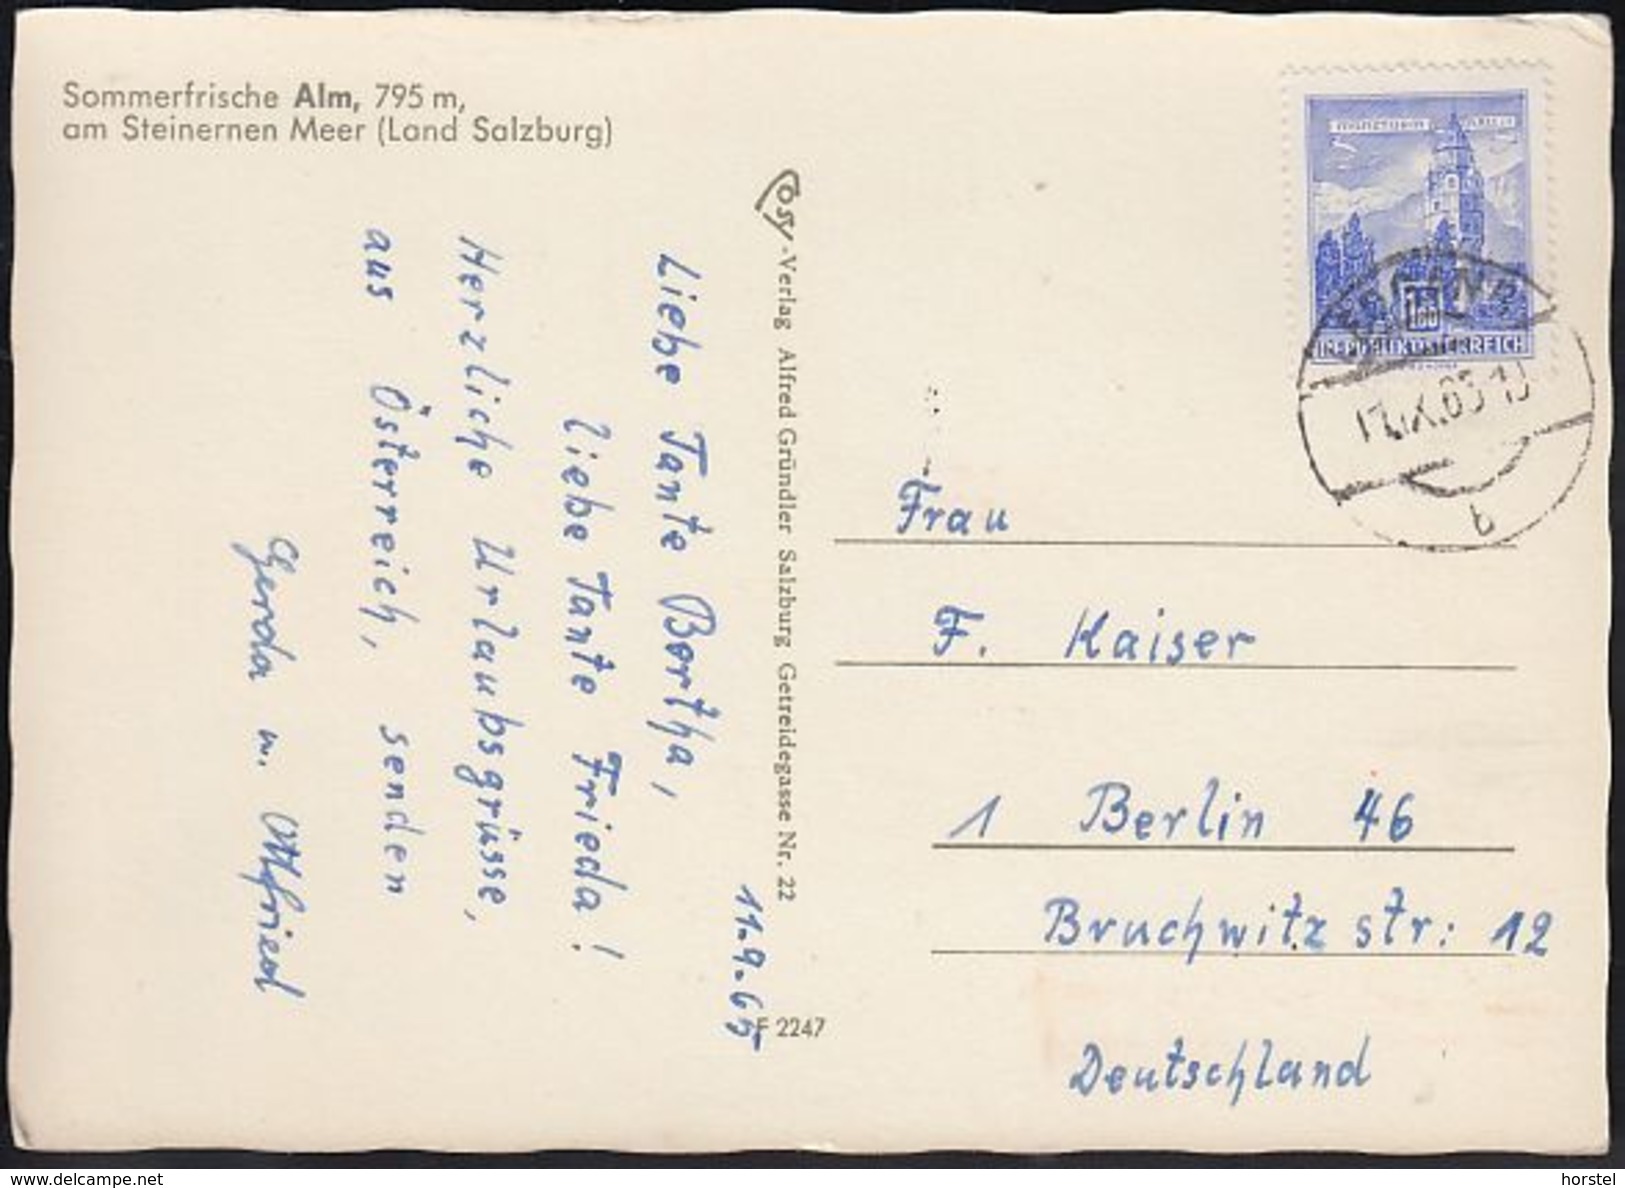 Sommerfrische Alm, 795 m,
am Steinernen Meer (Land Salzburg)
Cosy-Verlag Alfred Gründler Salzburg Getreidegasse Nr. 22
F 2247
11.9.65
Liebe Tante Bertha,
liebe Tante Frieda!
Herzliche Urlaubsgrüsse,
aus Österreich, senden
Gerda u. Ottfried
REPUBLIK ÖSTERREICH
b
Frau
F. Kaiser
1 Berlin 46
Bruchwitzstr: 12
Deutschland
www.delcampe.net
horstel